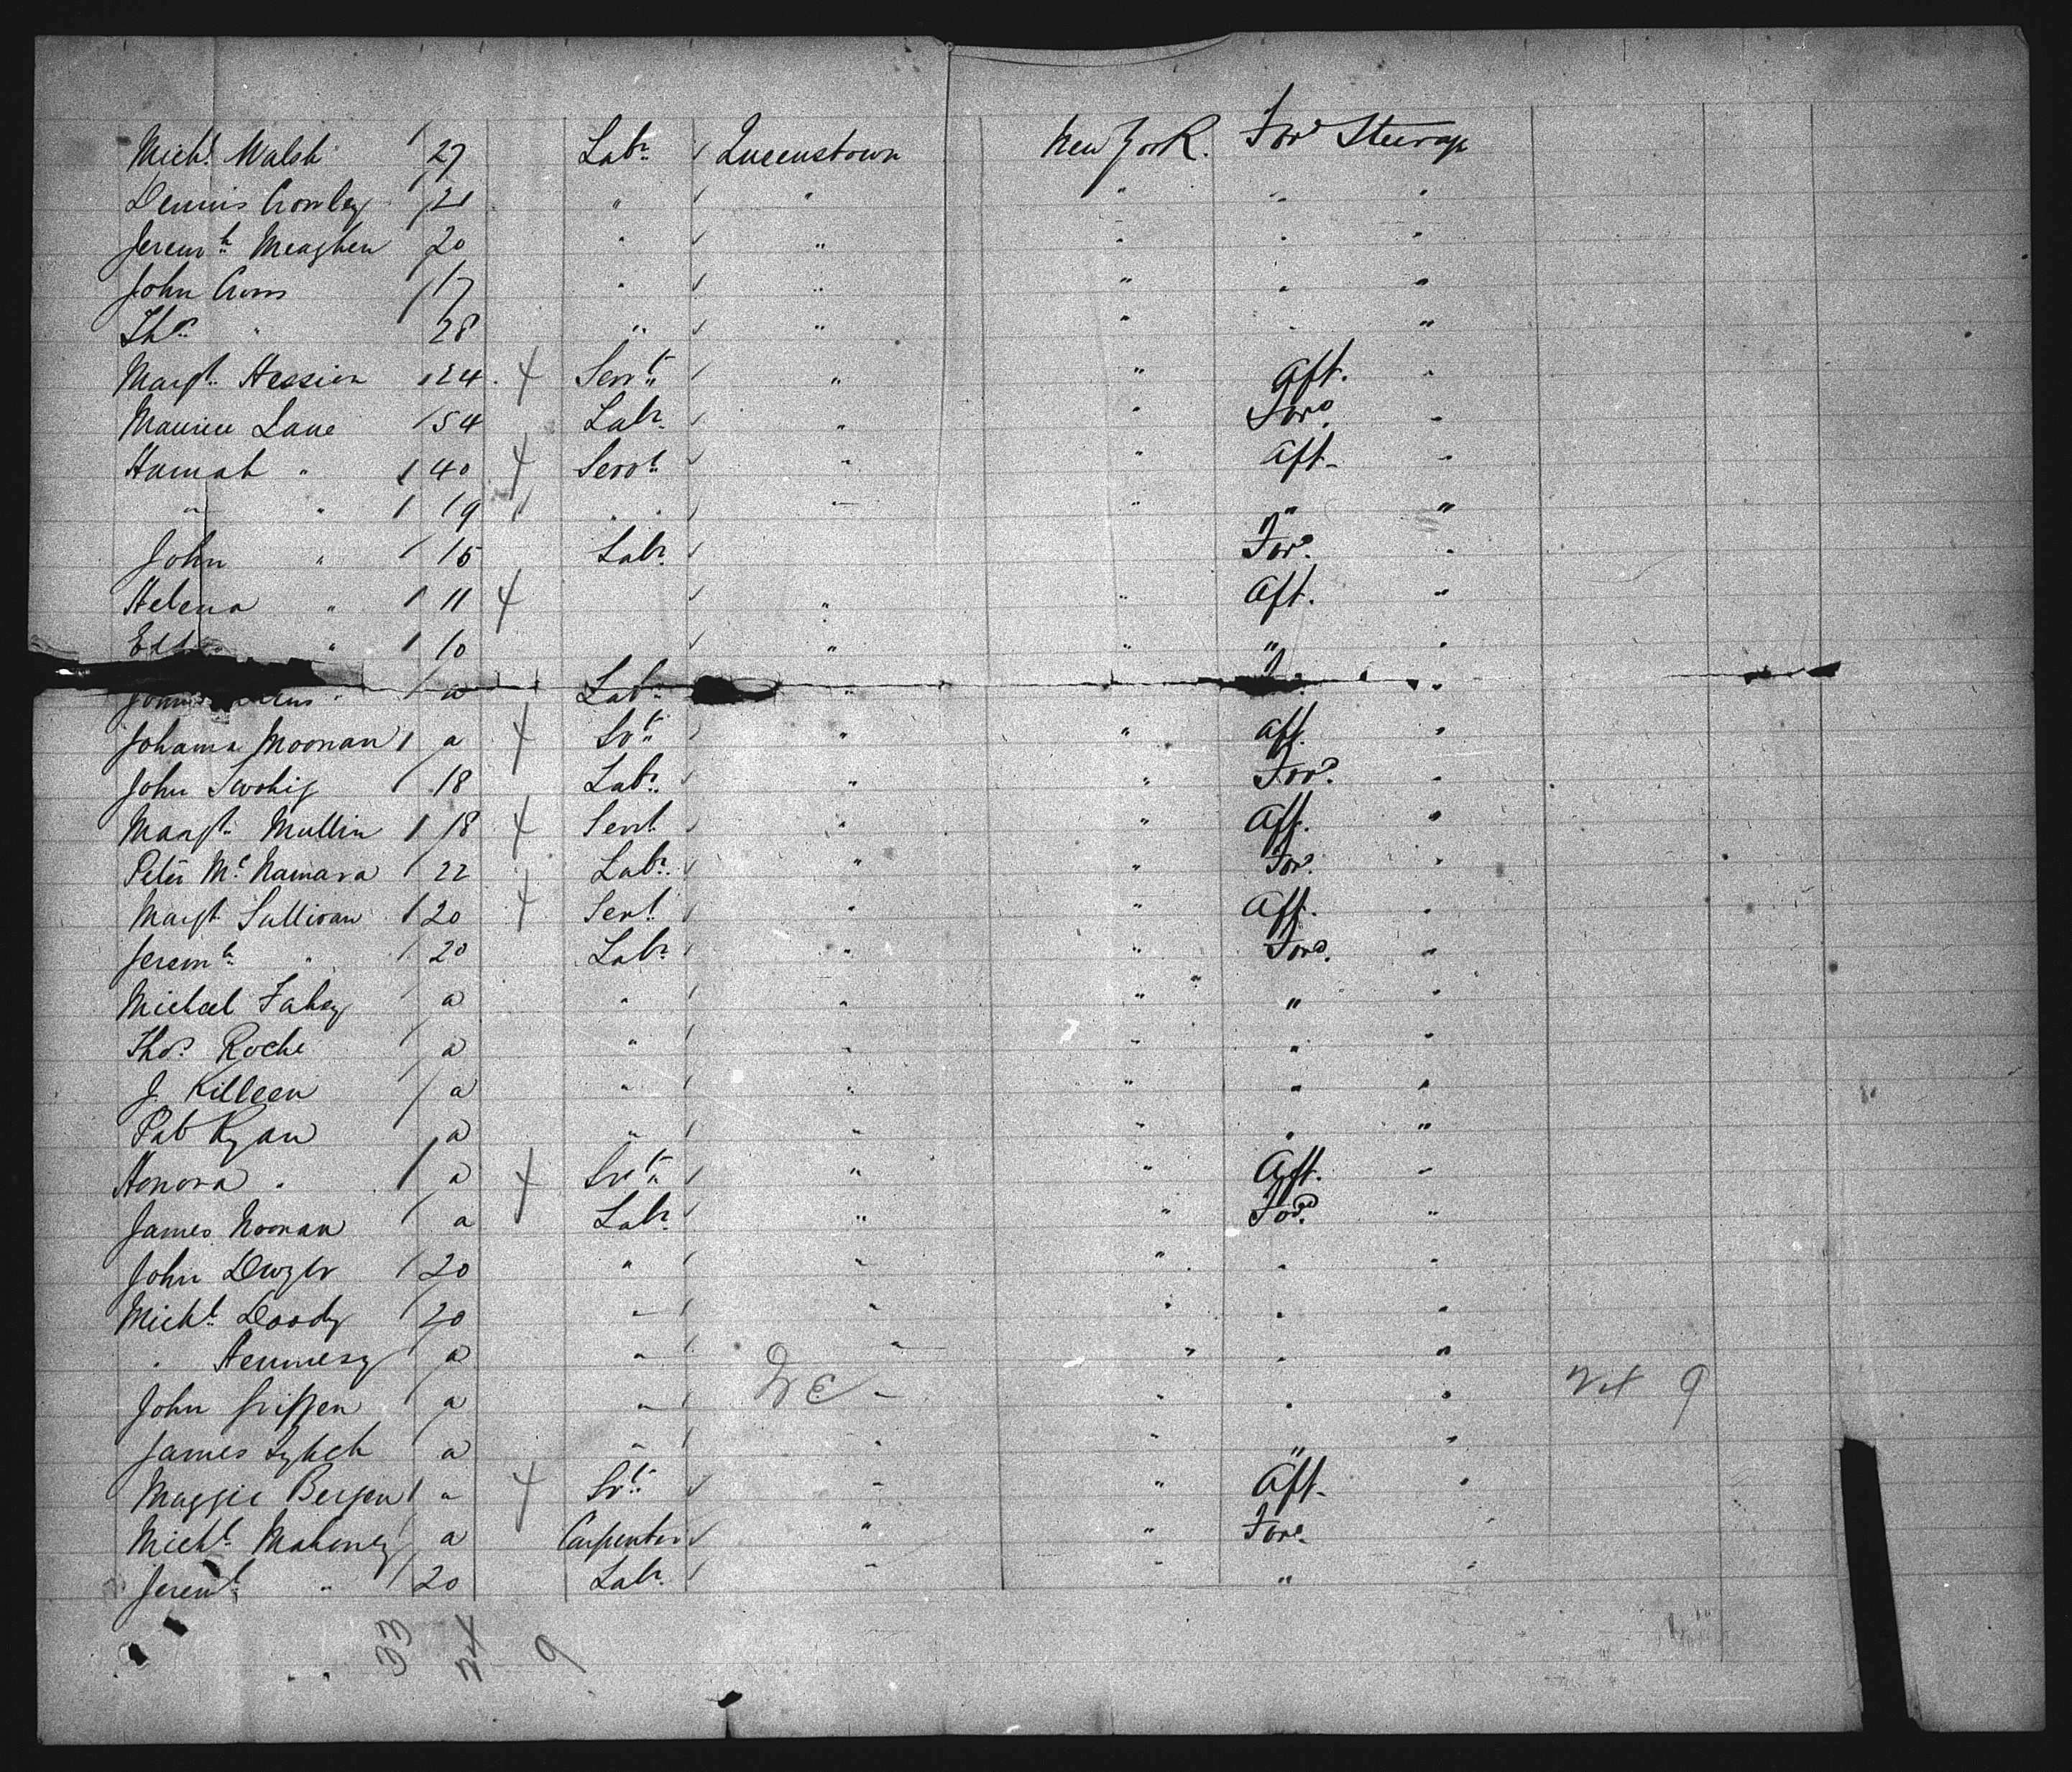 Michl. Walsh 27 Labr. Queenstown New York. Ford Steerage
Dennis Crowley 21 " " " " "
Jeremh. Meaghen 20 " " " " "
John Cross 17 " " " " "
Thos. " 28 " " " " "
Margt. Hession 24 Servt. " " Aft. "
Maurice Lane 54 Labr. " " Ford. "
Hannah " 40 Servt. " " Aft. "
" " 19 " " " " "
John " 15 Labr. Ford. "
Helena " 11 " " Aft. "
" 10 " " " "
a Labr. " "
Johanna Moonan a Svt. " " Aft. "
John Twohig 18 Labr. " " Ford. "
Margt. Mullin 18 Servt. " " Aft. "
Peter McNamara 22 Labr. " " Ford. "
Margt. Sullivan 20 Servt. " " Aft. "
Jeremh. " 20 Labr. " " Ford. "
Michael Fahey a " " " " "
Thos. Roche a " " " " "
J. Killeen a " " " " "
Pat Ryan a " " " " "
Honora " a Svt. " " Aft. "
James Noonan a Labr. " " Ford. "
John Dwyer 20 " " " " "
Michl. Doody 20 " " " " "
" Hennesy a " " " " "
John Griffen a " " " " " 24 9
James Lynch a " " " " "
Maggie Bergen " Svt. " " Aft. "
Michl. Mahoney a Carpenter " " Ford. "
Jeremh. " 20 Labr. " " " "
33 24 9